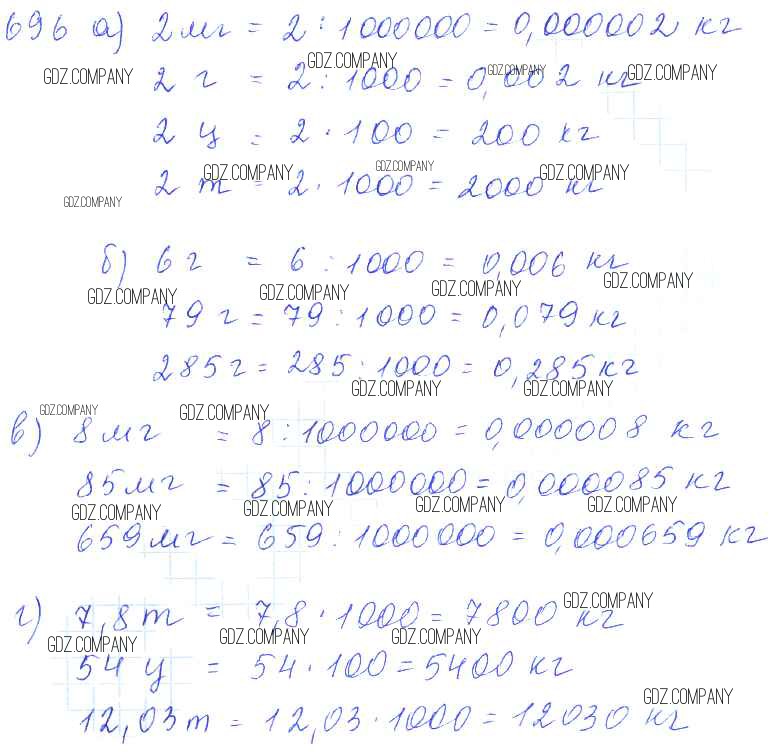 696 а) 2 мг = 2 : 1000000 = 0,000002 кг
GDZ.COMPANY GDZ.COMPANY GDZ.COMPANY GDZ.COMPANY
2 г = 2 : 1000 = 0,002 кг
2 ц = 2 · 100 = 200 кг
GDZ.COMPANY GDZ.COMPANY GDZ.COMPANY
2 т = 2 · 1000 = 2000 кг
GDZ.COMPANY
б) 6 г = 6 : 1000 = 0,006 кг
GDZ.COMPANY GDZ.COMPANY GDZ.COMPANY GDZ.COMPANY
79 г = 79 : 1000 = 0,079 кг
285 г = 285 : 1000 = 0,285 кг
GDZ.COMPANY GDZ.COMPANY
GDZ.COMPANY GDZ.COMPANY
в) 8 мг = 8 : 1000000 = 0,000008 кг
85 мг = 85 : 1000000 = 0,000085 кг
GDZ.COMPANY GDZ.COMPANY GDZ.COMPANY GDZ.COMPANY
659 мг = 659 : 1000000 = 0,000659 кг
GDZ.COMPANY
г) 7,8 т = 7,8 · 1000 = 7800 кг
GDZ.COMPANY GDZ.COMPANY GDZ.COMPANY
54 ц = 54 · 100 = 5400 кг
GDZ.COMPANY
12,03 т = 12,03 · 1000 = 12030 кг